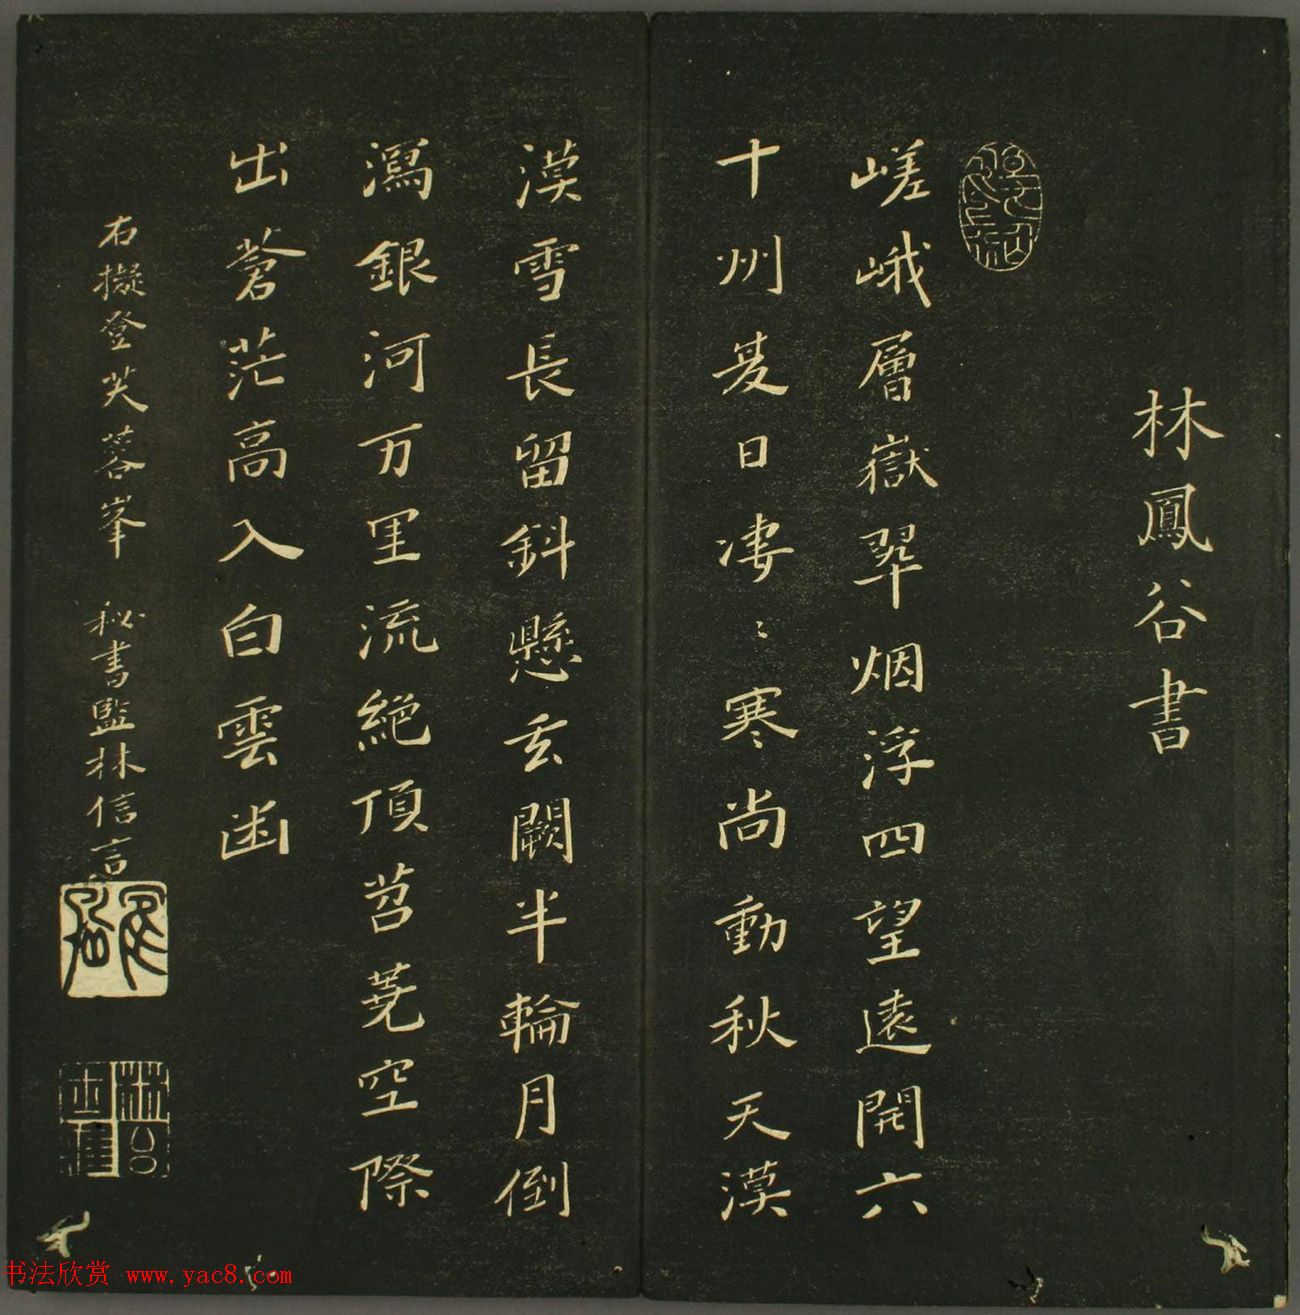 林鳳谷書
嵯峨層嶽翠烟浮四望遠開六
十州夏日凄〻寒尚動秋天漠
漠雪長留斜懸玄闕半輪月倒
瀉銀河万里流絶頂苕蕘空際
出蒼茫高入白雲幽
右擬登芙蓉峯 秘書監林信言
書法欣赏 www.yac8.com